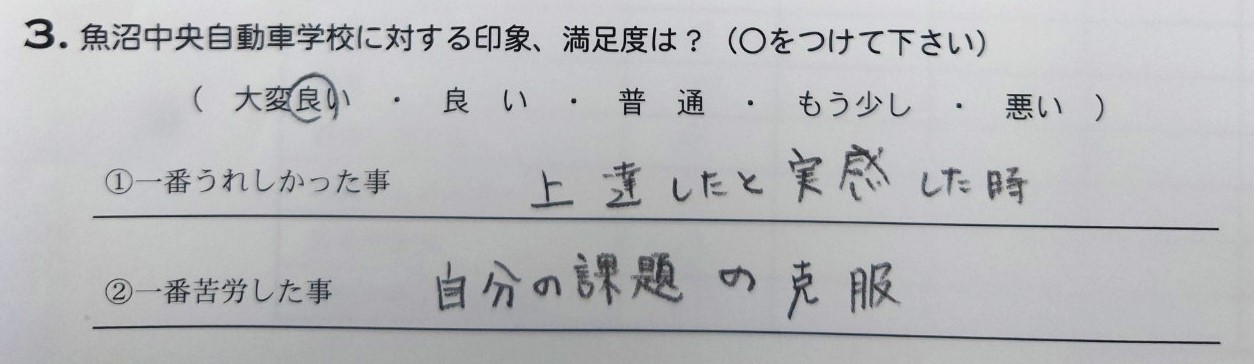 3. 魚沼中央自動車学校に対する印象、満足度は？（○をつけて下さい）
（ 大変良い ・ 良い ・ 普通 ・ もう少し ・ 悪い ）
①一番うれしかった事 上達したと実感した時
②一番苦労した事 自分の課題の克服